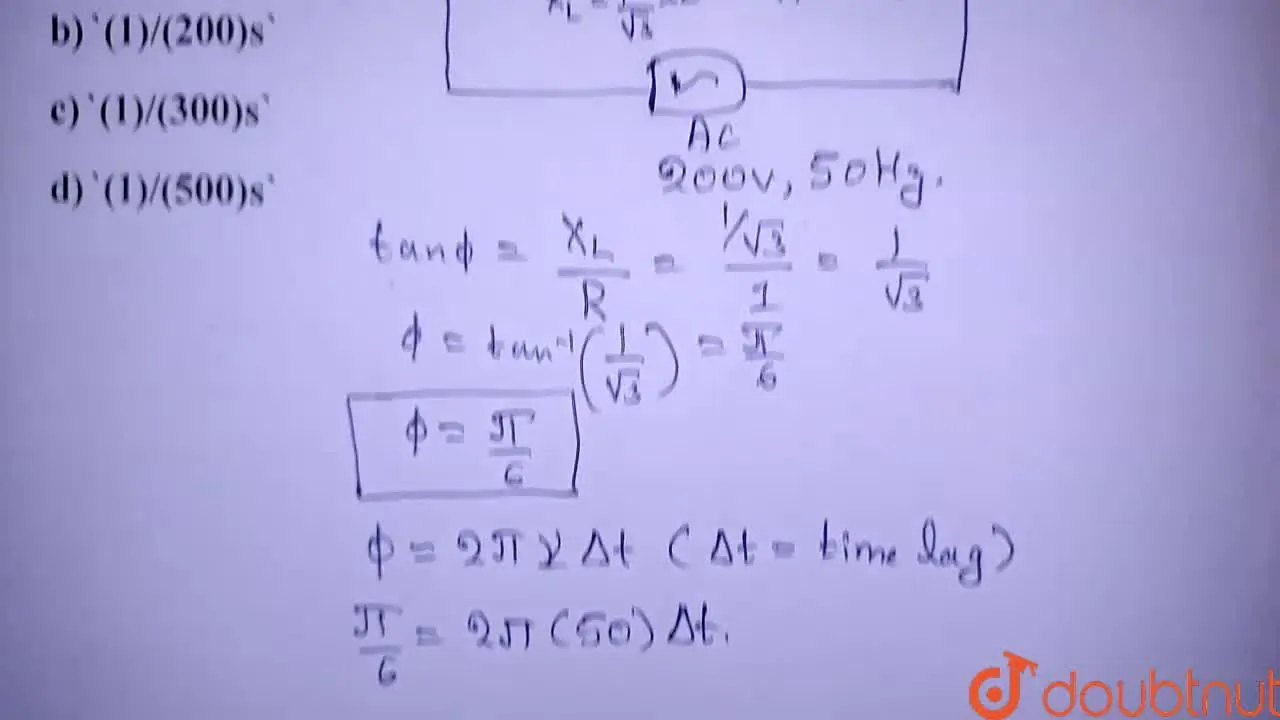 b) `(1)/(200)s`
c) `(1)/(300)s`
d) `(1)/(500)s`
AC
200V, 50Hz.
tanϕ = X_L/R = (1/√3)/1 = 1/√3
ϕ = tan⁻¹(1/√3) = π/6
ϕ = π/6
ϕ = 2πν Δt (Δt = time lag)
π/6 = 2π(50) Δt.
doubtnut